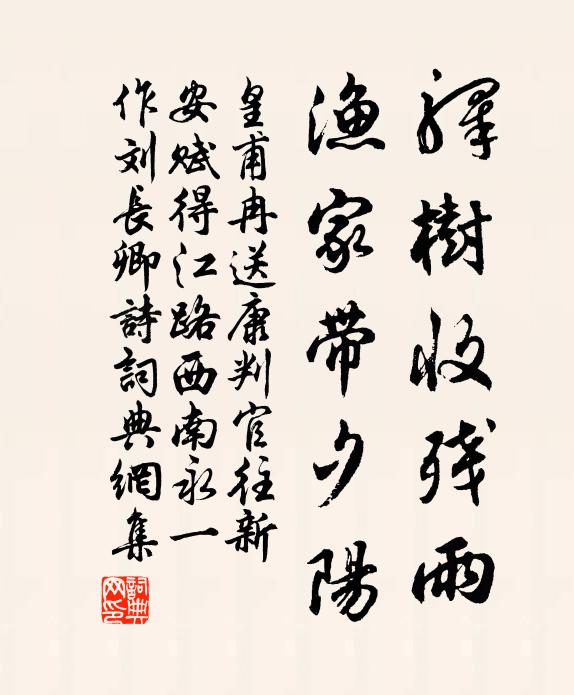 驛樹收残雨
漁家带夕陽
皇甫冉送康判官往新
安賦得江路西南永一
作刘長卿詩詞典網集
詞典
网印